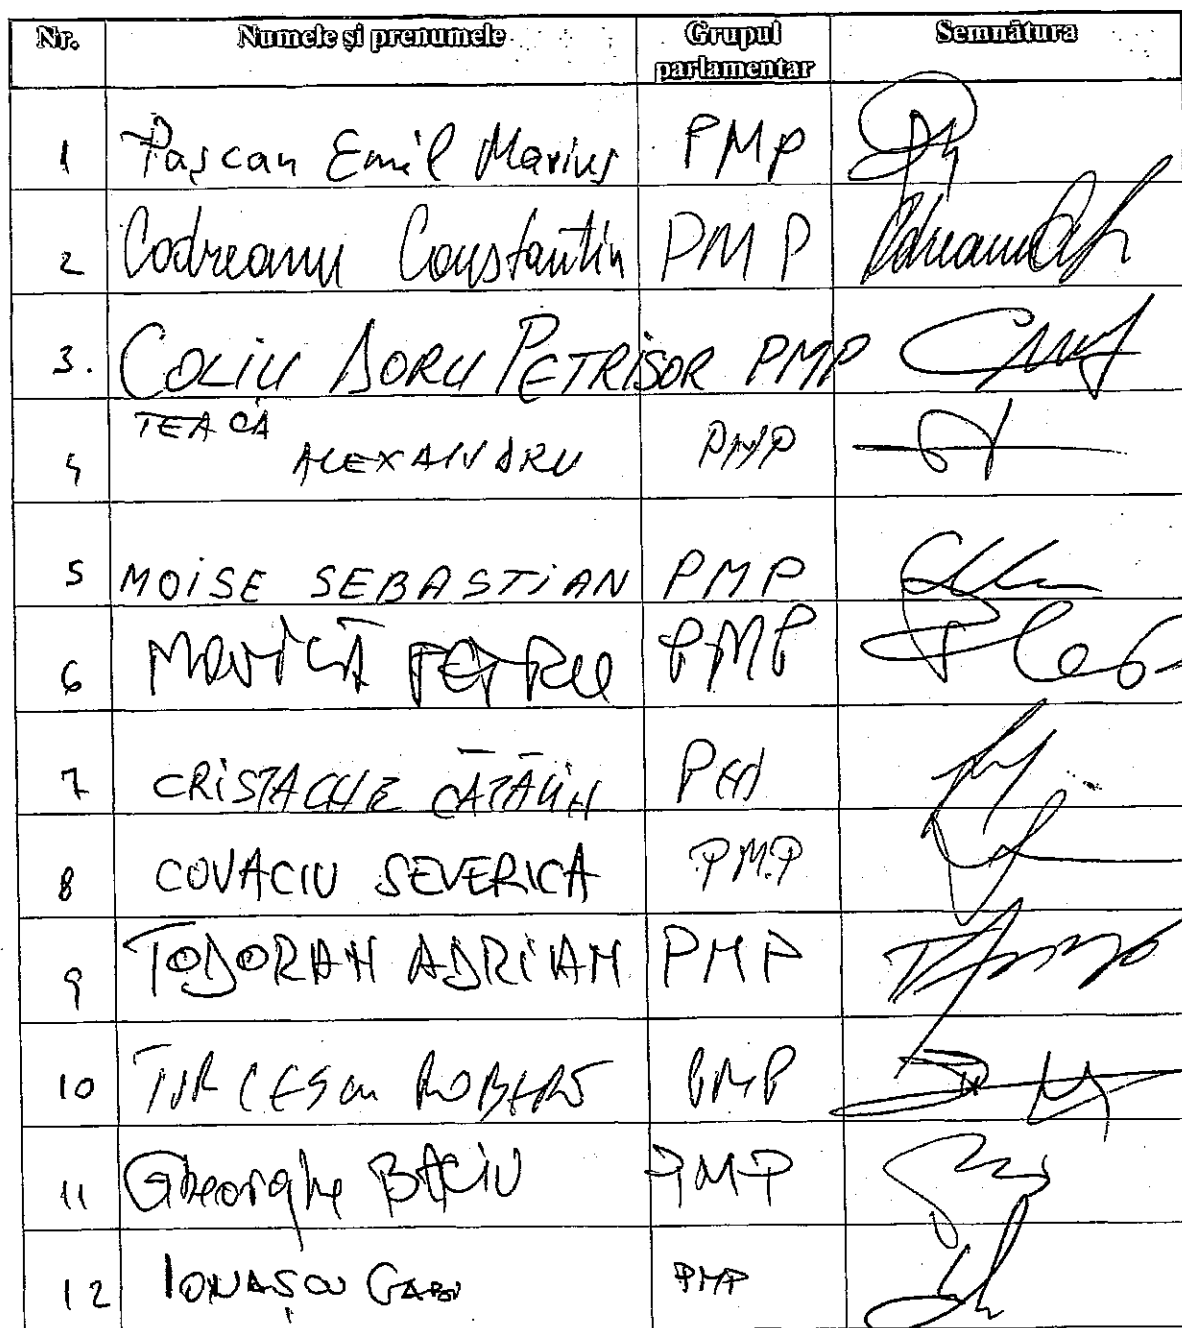 Nr. Numele și prenumele Grupul parlamentar Semnătura
1 Pașcan Emil Marius PMP
2 Codreanu Constantin PMP
3. COLIU DORU PETRISOR PMP
4 TEACĂ ALEXANDRU PMP
5 MOISE SEBASTIAN PMP
6 MOVILĂ PETRU PMP
7 CRISTACHE CĂTĂLIN
8 COVACIU SEVERICA PMP
9 TODORAN ADRIAN PMP
10 TURCESCU ROBERT PMP
11 Gheorghe BACIU PMP
12 IONAȘCU GABI PMP